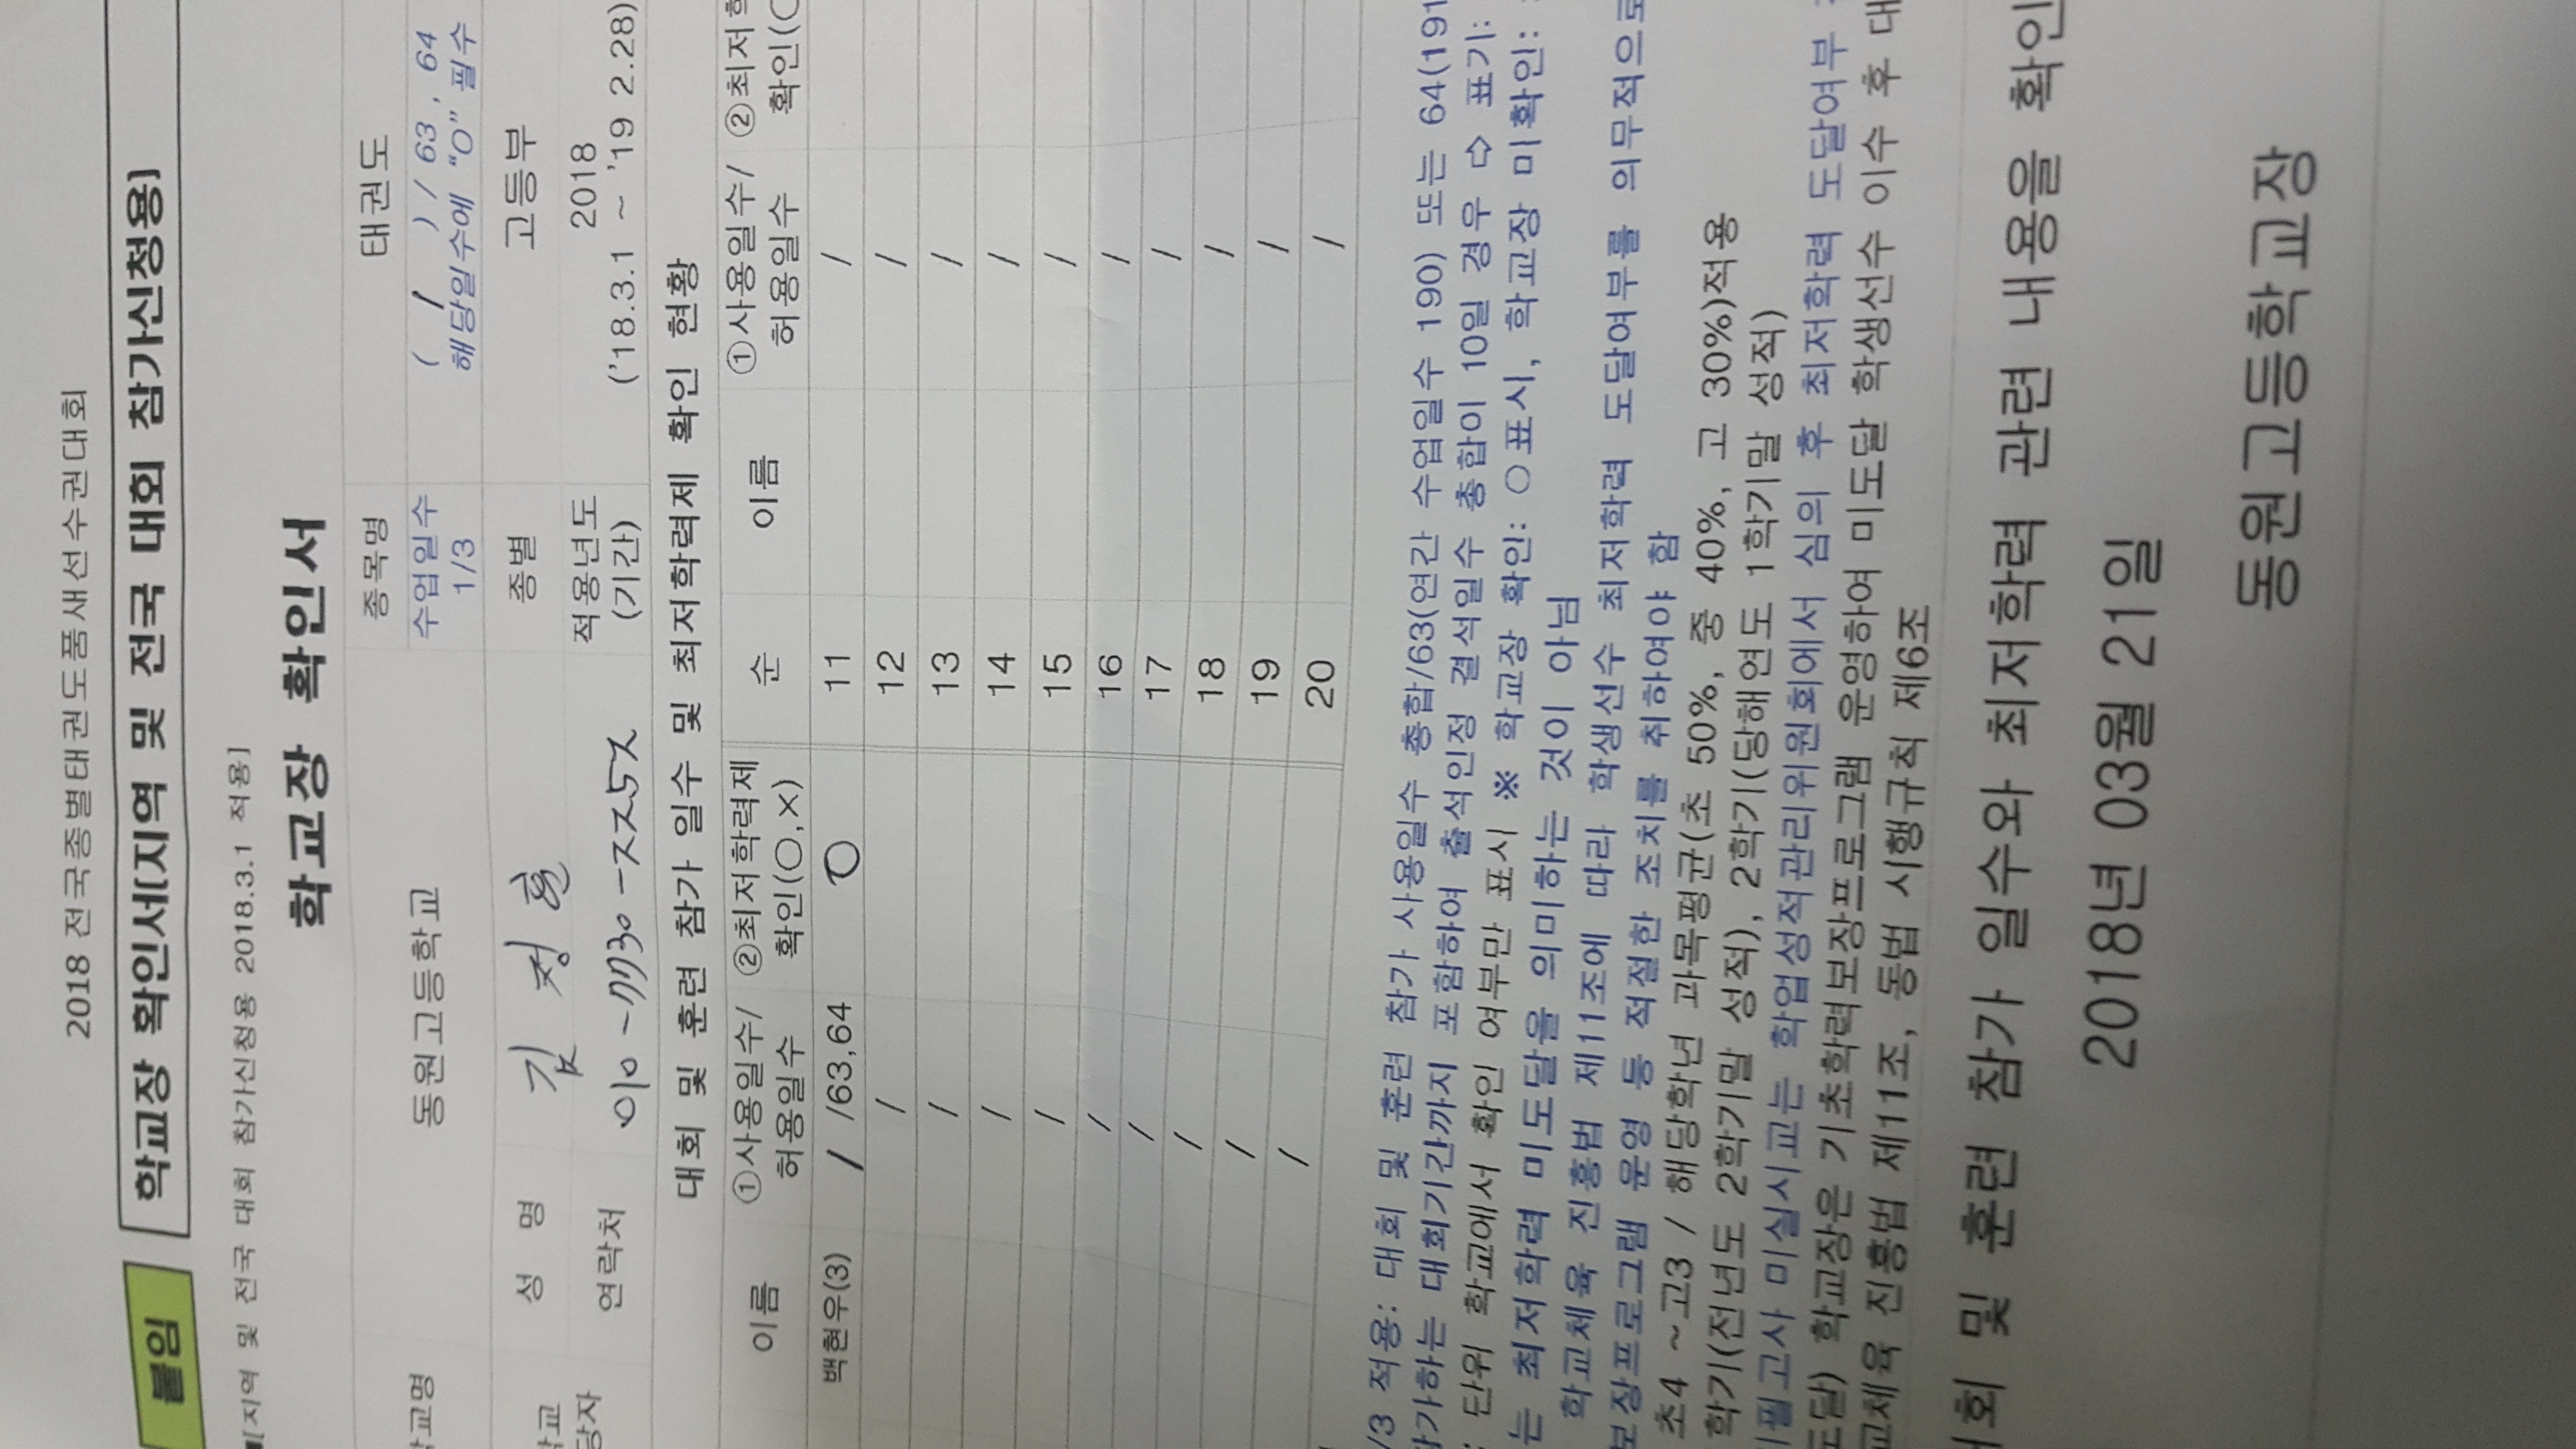 2018 전국종별태권도품새선수권대회
붙임 학교장 확인서[지역 및 전국 대회 참가신청용]
■[지역 및 전국 대회 참가신청용 2018.3.1 적용]
학교장 확인서
교명 동원고등학교 종목명 태권도
수업일수 1/3 ( / ) / 63 , 64
해당일수에 "O" 필수
성 명 김 정 훈 종별 고등부
당자 연락처 적용년도 (기간) 2018
('18.3.1 ~ '19 2.28)
대회 및 훈련 참가 일수 및 최저학력제 확인 현황
이름 ①사용일수/ 허용일수 ②최저학력제 확인(○,×) 순 이름 ①사용일수/ 허용일수 ②최저 확인(○
백현우(3) / /63,64 O 11 /
/ 12 /
/ 13 /
/ 14 /
/ 15 /
/ 16 /
/ 17 /
/ 18 /
/ 19 /
/ 20 /
/3 적용: 대회 및 훈련 참가 사용일수 총합/63(연간 수업일수 190) 또는 64(191
참가하는 대회기간까지 포함하여 출석인정 결석일수 총합이 10일 경우 ⇨ 표기:
: 단위 학교에서 확인 여부만 표시 ※ 학교장 확인: ○표시, 학교장 미확인:
는 최저학력 미도달을 의미하는 것이 아님
학교체육 진흥법 제11조에 따라 학생선수 최저학력 도달여부를 의무적으로
보장프로그램 운영 등 적절한 조치를 취하여야 함
초4 ~고3 / 해당학년 과목평균(초 50%, 중 40%, 고 30%)적용
학기(전년도 2학기말 성적), 2학기(당해연도 1학기말 성적)
필고사 미실시교는 학업성적관리위원회에서 심의 후 최저학력 도달여부
도달) 학교장은 기초학력보장프로그램 운영하여 미도달 학생선수 이수 후 대
교체육 진흥법 제11조, 동법 시행규칙 제6조
대회 및 훈련 참가 일수와 최저학력 관련 내용을 확인
2018년 03월 21일
동원고등학교장